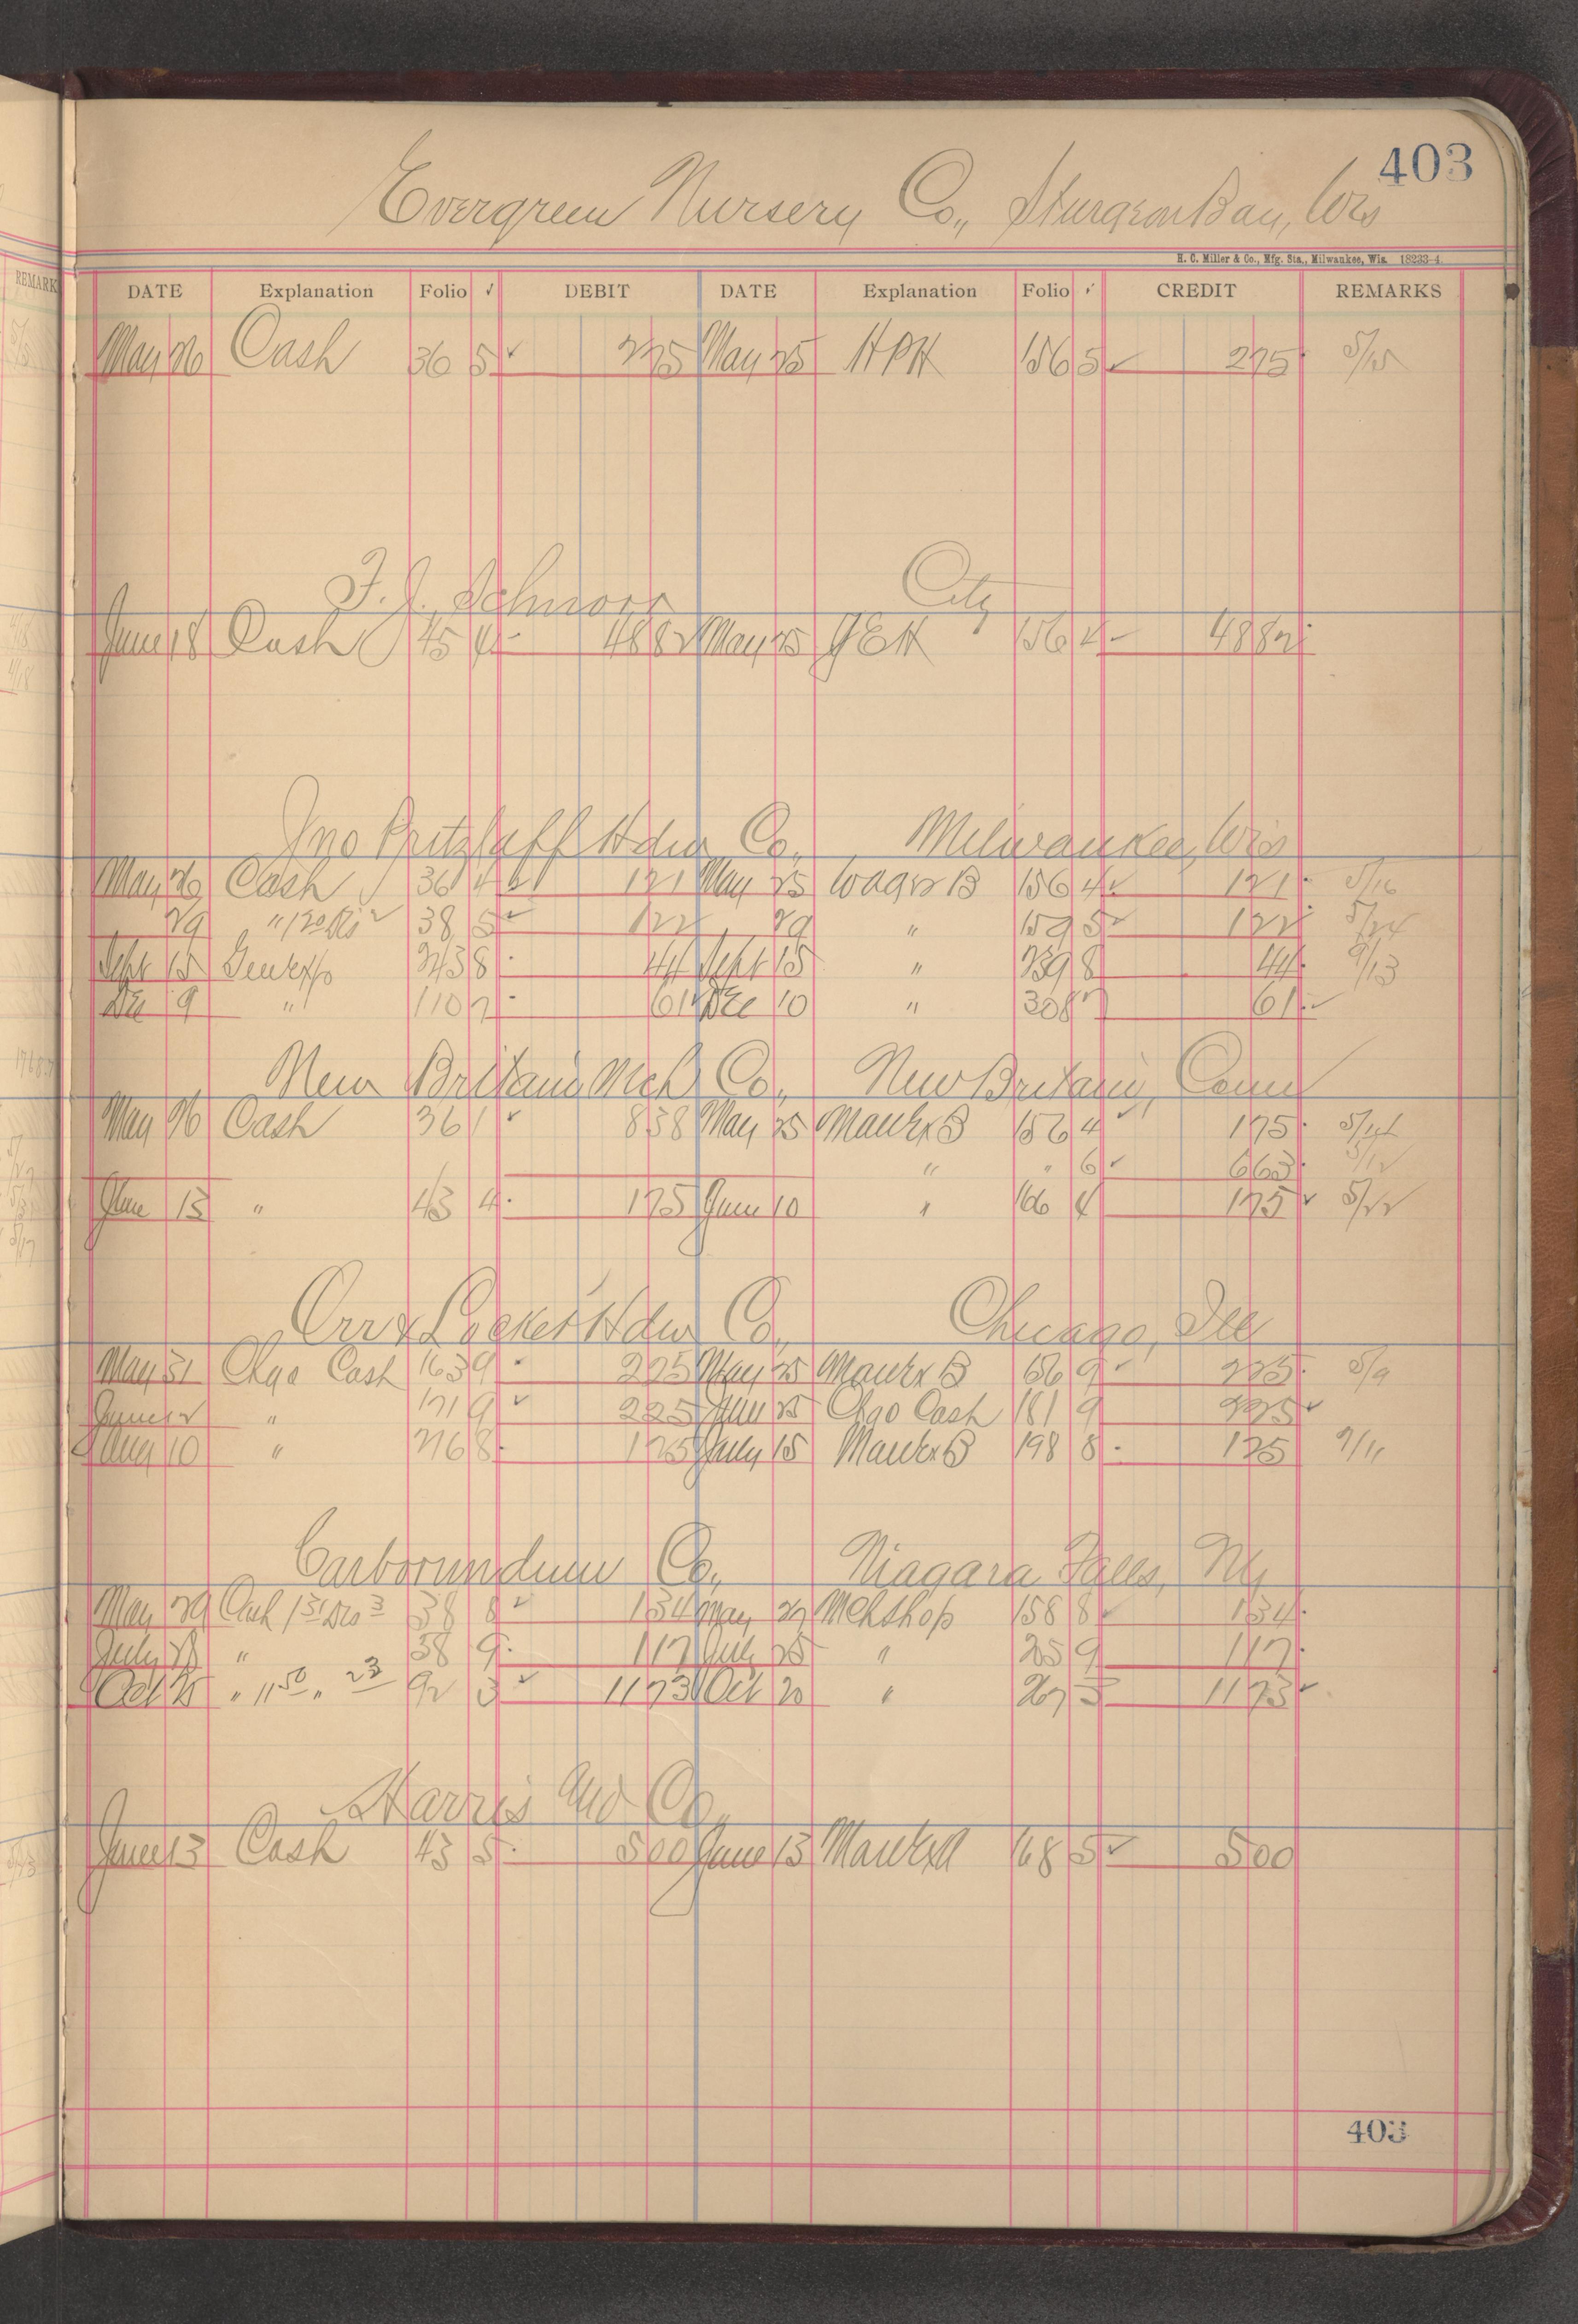 403
Evergreen Nursery Co., Sturgeon Bay, Wis
H. C. Miller & Co., Mfg. Sta., Milwaukee, Wis. 18233-4
REMARK
DATE Explanation Folio ✓ DEBIT DATE Explanation Folio ✓ CREDIT REMARKS
May 26 Cash 36 5 ✓ 275 May 25 HPH 156 5 ✓ 275 5/15
F. J. Schnorr City
June 18 Cash 45 4 4882 May 25 GEH 156 4 4882
Jno Pritzlaff Hdw Co., Milwaukee, Wis
May 26 Cash 36 4 121 May 25 Wagr B 156 4 ✓ 121 5/16
29 " 38 5 ✓ 122 29 " 159 5 ✓ 122 5/24
Sept 15 243 8 44 Sept 15 " 239 8 44 9/13
Dec 9 " 110 7 61 Dec 10 " 308 7 61 ✓
New Britain Mch Co., New Britain, Conn
May 26 Cash 36 1 ✓ 838 May 25 ManExB 156 4 ✓ 175 5/14
" " 6 ✓ 663 5/12
June 13 " 43 4 175 June 10 " 166 4 175 ✓ 5/22
Orr & Locket Hdw Co., Chicago, Ill
May 31 Chgo Cash 163 9 225 May 25 ManEx B 156 9 ✓ 225 5/9
June 12 " 171 9 ✓ 225 June 25 Chgo Cash 181 9 225 ✓
Aug 10 " 216 8 175 July 15 ManEx B 198 8 175 7/11
Carborundum Co., Niagara Falls, NY
May 29 Cash 38 8 ✓ 134 May 27 Mchshop 158 8 134
July 28 " 58 9 117 July 25 " 205 9 117
Oct 25 " 11 50 " 23 92 3 ✓ 1173 Oct 20 " 267 3 1173 ✓
Harris Co.,
June 13 Cash 43 5 500 June 13 ManExA 168 5 ✓ 500
403